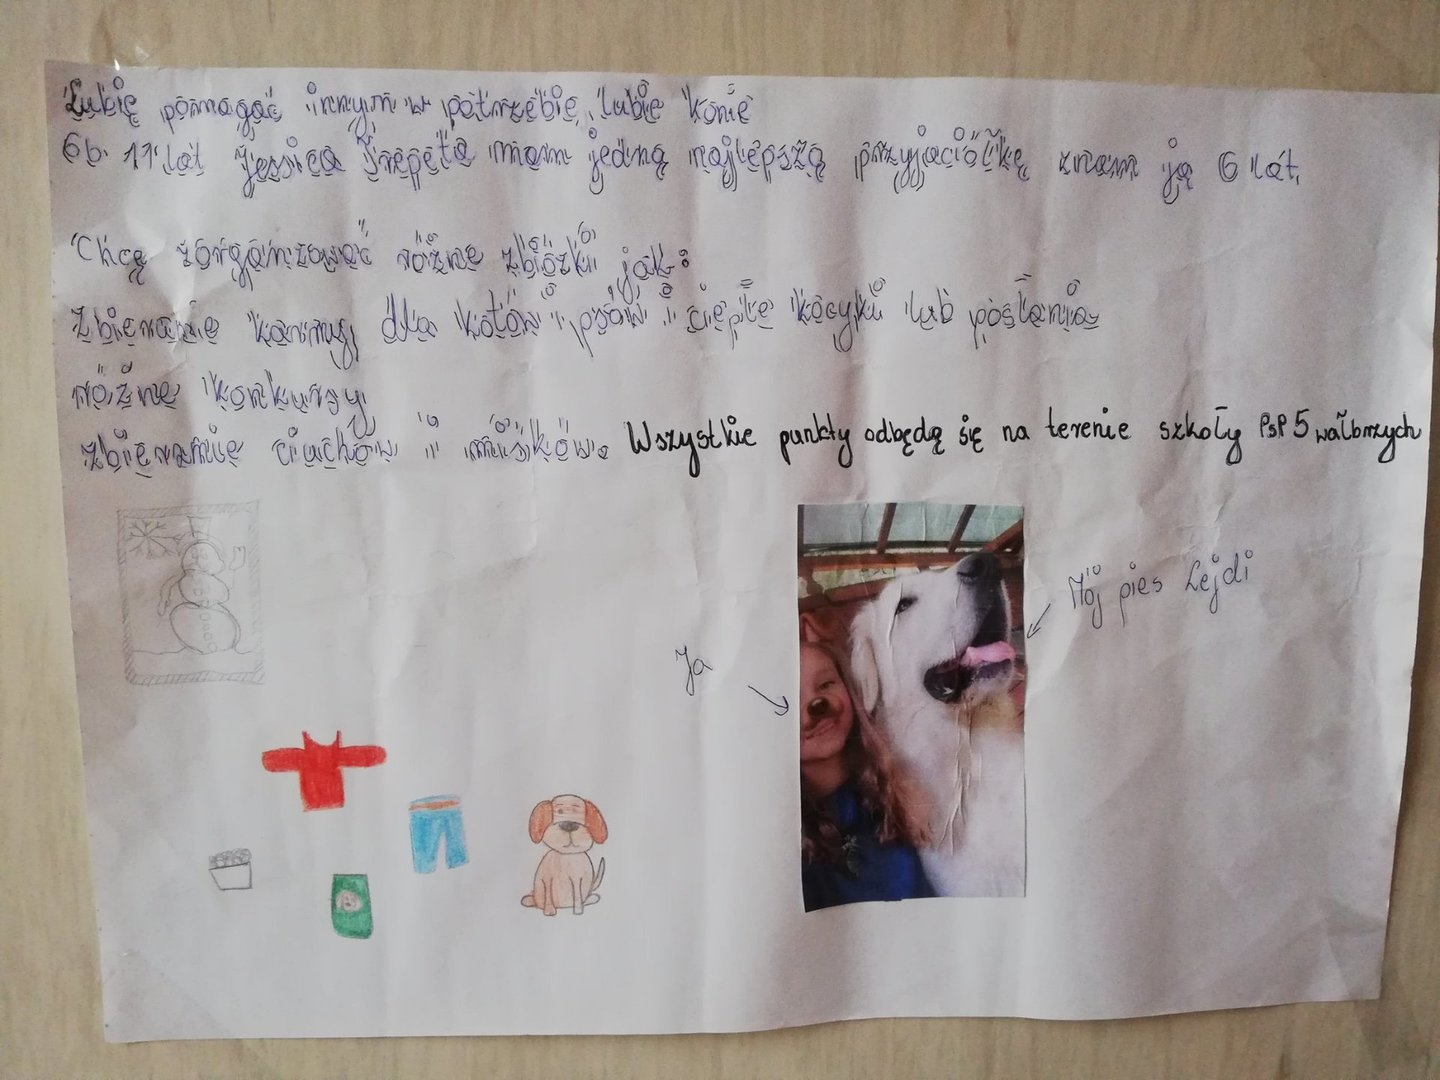 Lubię pomagać innym w potrzebię, lubię konie
6b. 11 lat Jessica Srepeta mam jedną najlepszą przyjaciółkę znam ją 6 lat.
Chcę zorganizować różne zbiózki jak:
zbieranie karmy dla kotów i psów i ciepłe kocyki lub posłania
różne konkursy
zbieranie ciuchów i misków. Wszystkie punkty odbędą się na terenie szkoły PSP 5 wałbrzych
Mój pies Lejdi
Ja